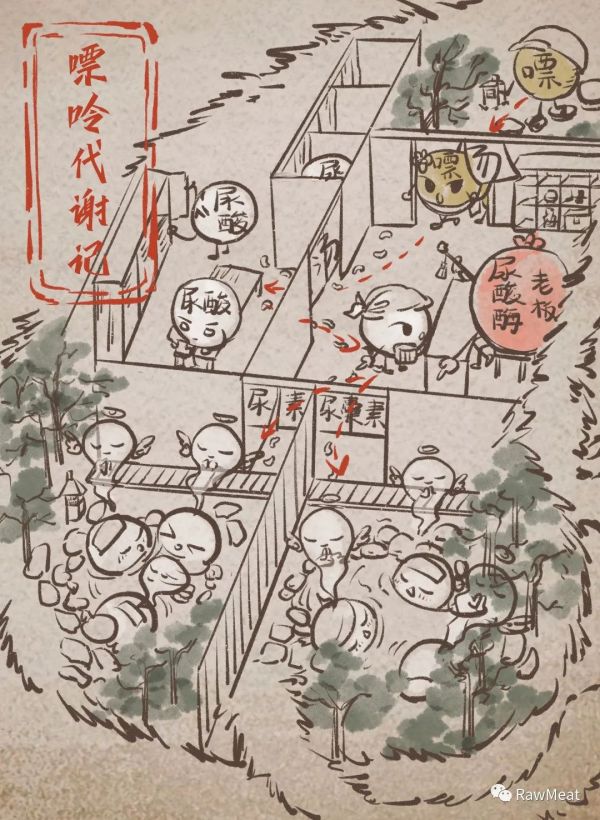 嘌呤代谢记
嘌
嘌
汤
尿
尿酸
尿酸
汤
老板
尿酸酶
尿素
尿囊素
RawMeat